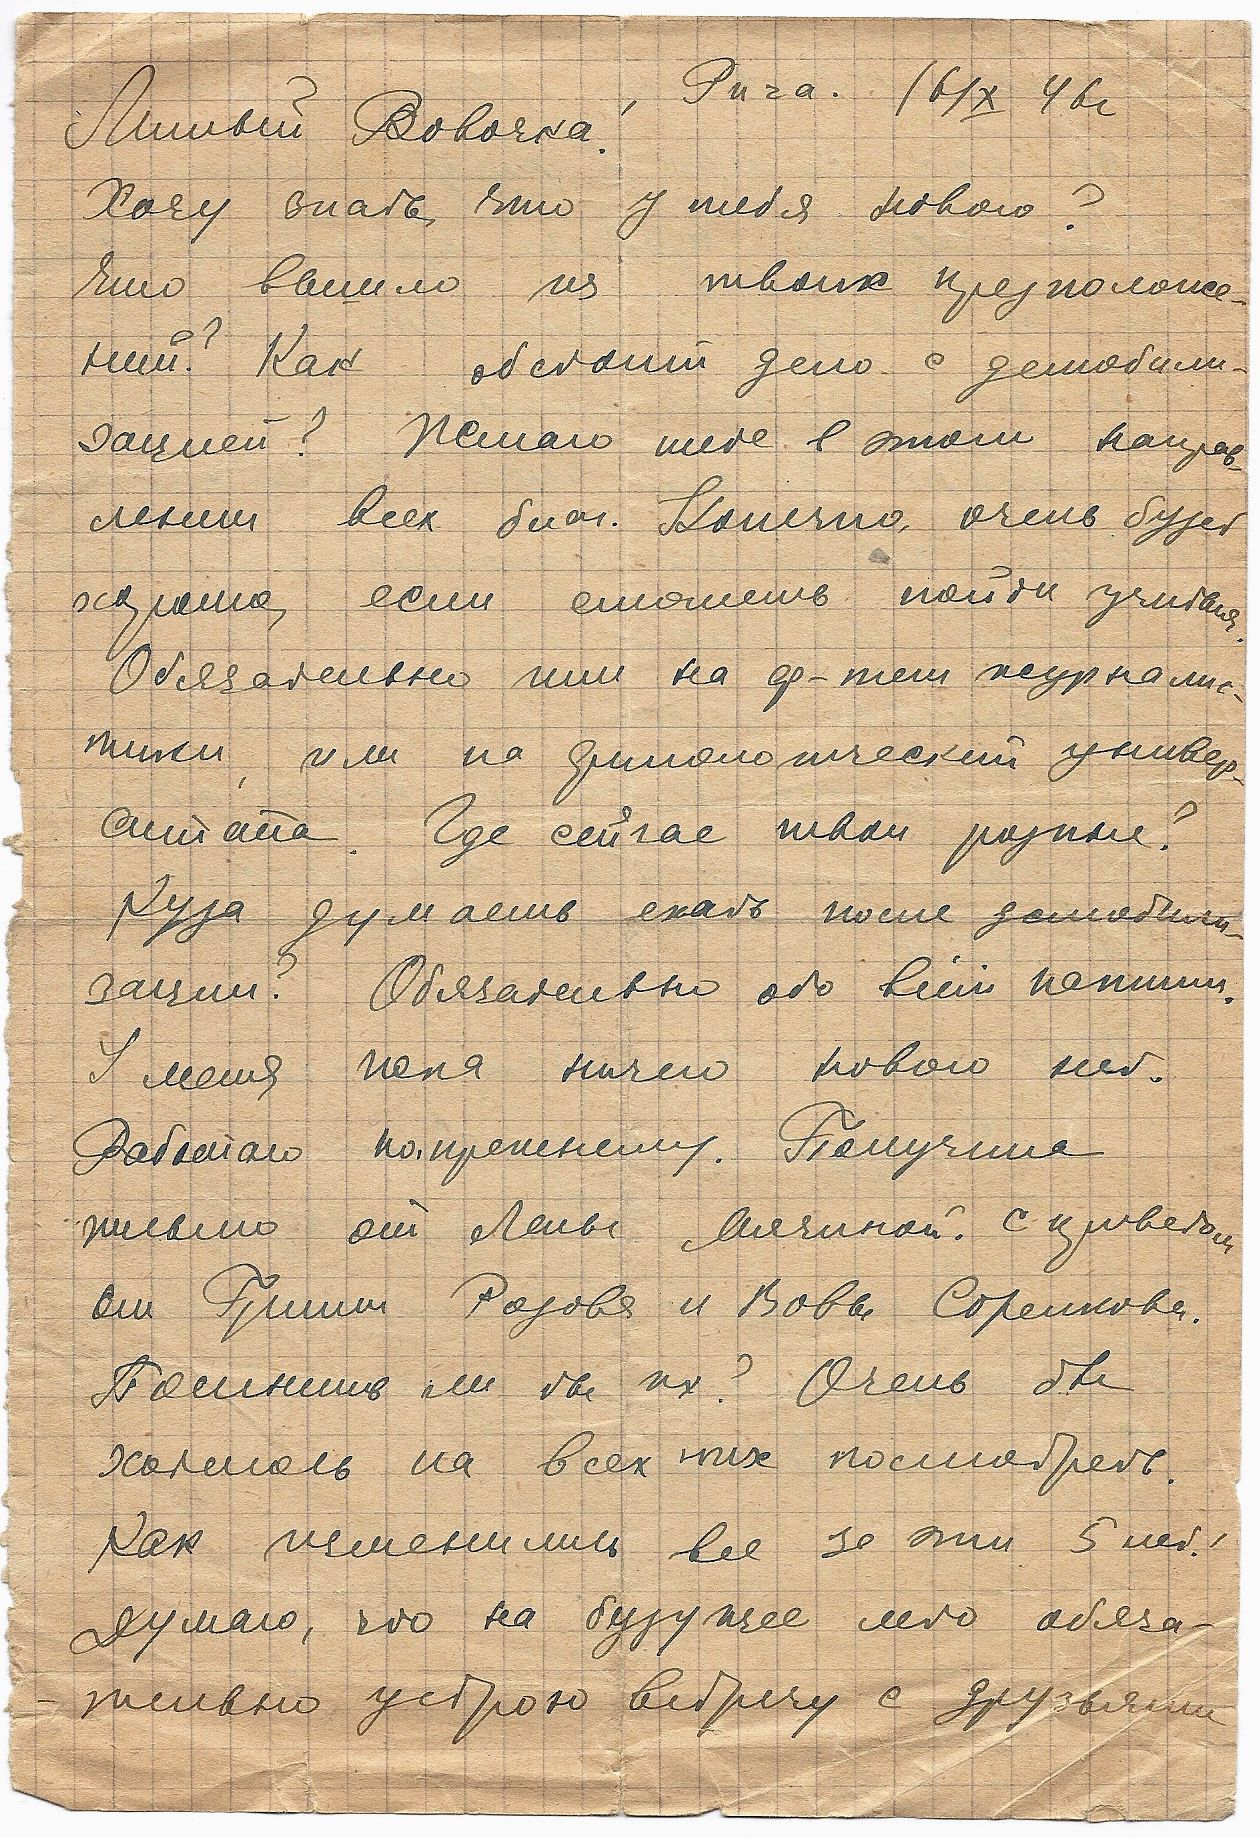 Рига. 16/X 46г
Милый Вовочка!
Хочу знать, что у тебя нового?
Что вышло из твоих предположе-
ний? Как обстоит дело с демобили-
зацией? Желаю тебе в этом направ-
лении всех благ. Конечно, очень будет
хорошо, если сможешь пойти учиться.
Обязательно или на ф-тет журналис-
тики, или на филологический универ-
ситета. Где сейчас твои родные?
Куда думаешь ехать после демобили-
зации? Обязательно обо всём напиши.
У меня пока ничего нового нет.
Работаю по-прежнему. Получила
письмо от Лены с приветом
от Гриши и Вовы
Помнишь ли ты их? Очень бы
хотелось на всех них посмотреть.
Как изменились все за эти 5 лет!
Думаю, что на будущее лето обяза-
тельно устрою встречу с друзьями